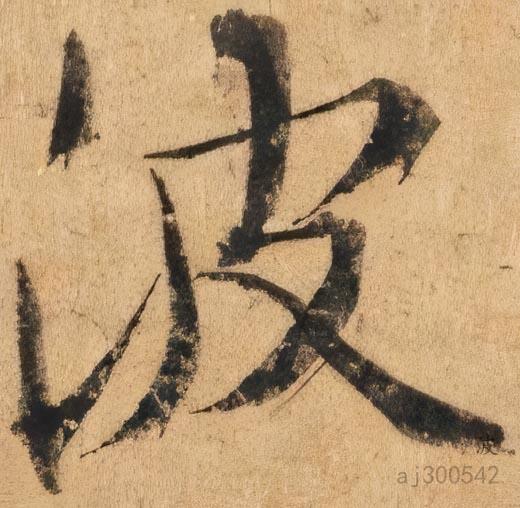 波
波
aj300542